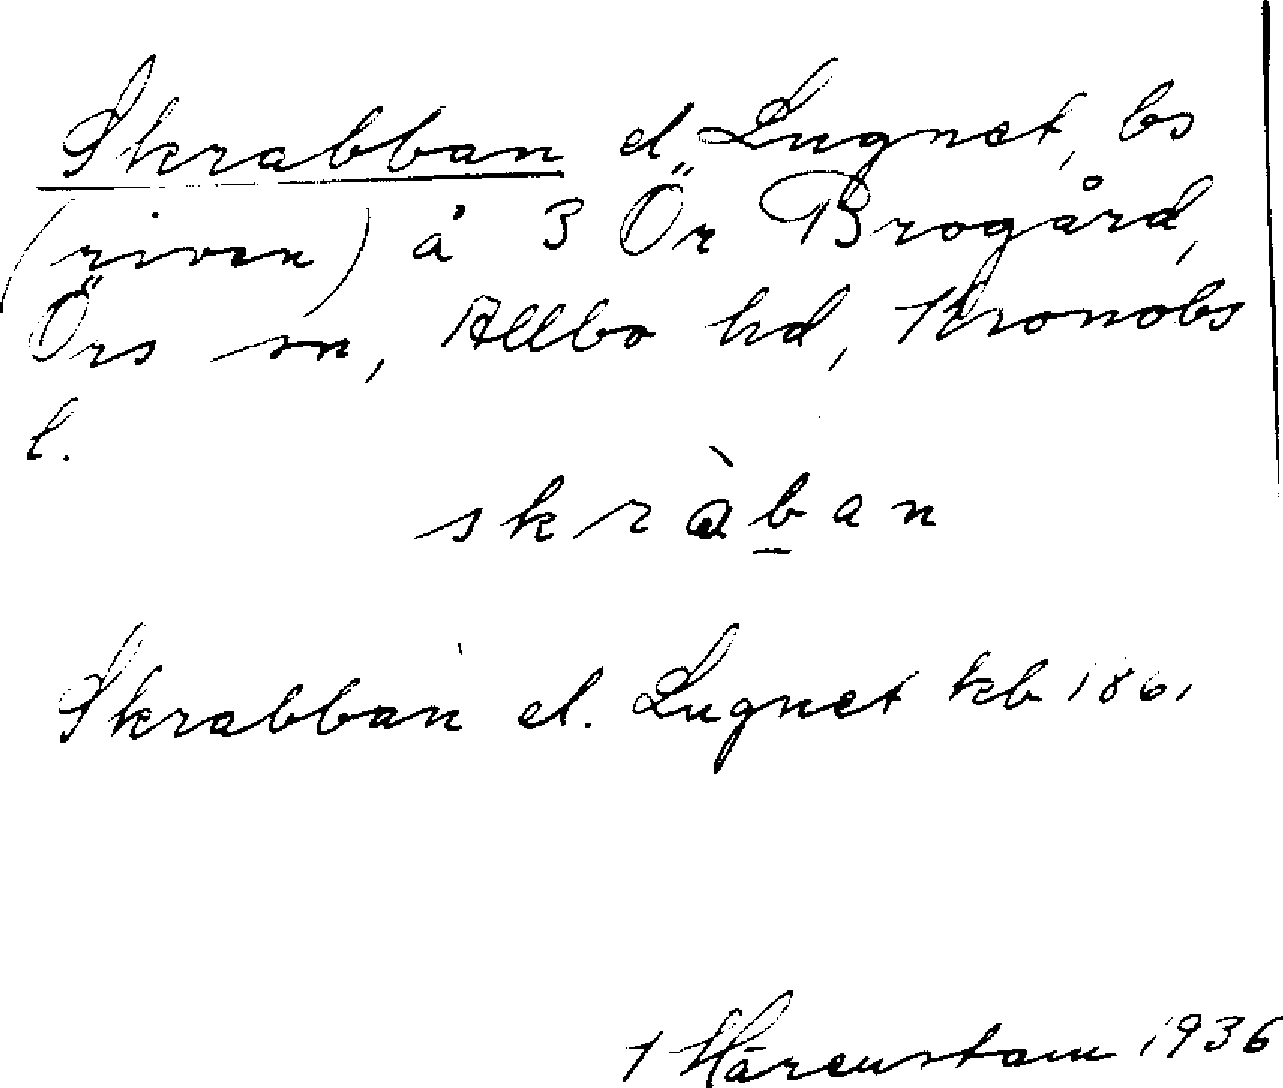 Skrabban el. Lugnet, bs
(riven) å 3 Ör Brogård,
Örs sn, Allbo hd, Kronobs
l.
skràb̲an
Skrabban el. Lugnet kb 1861
Härenstam 1936